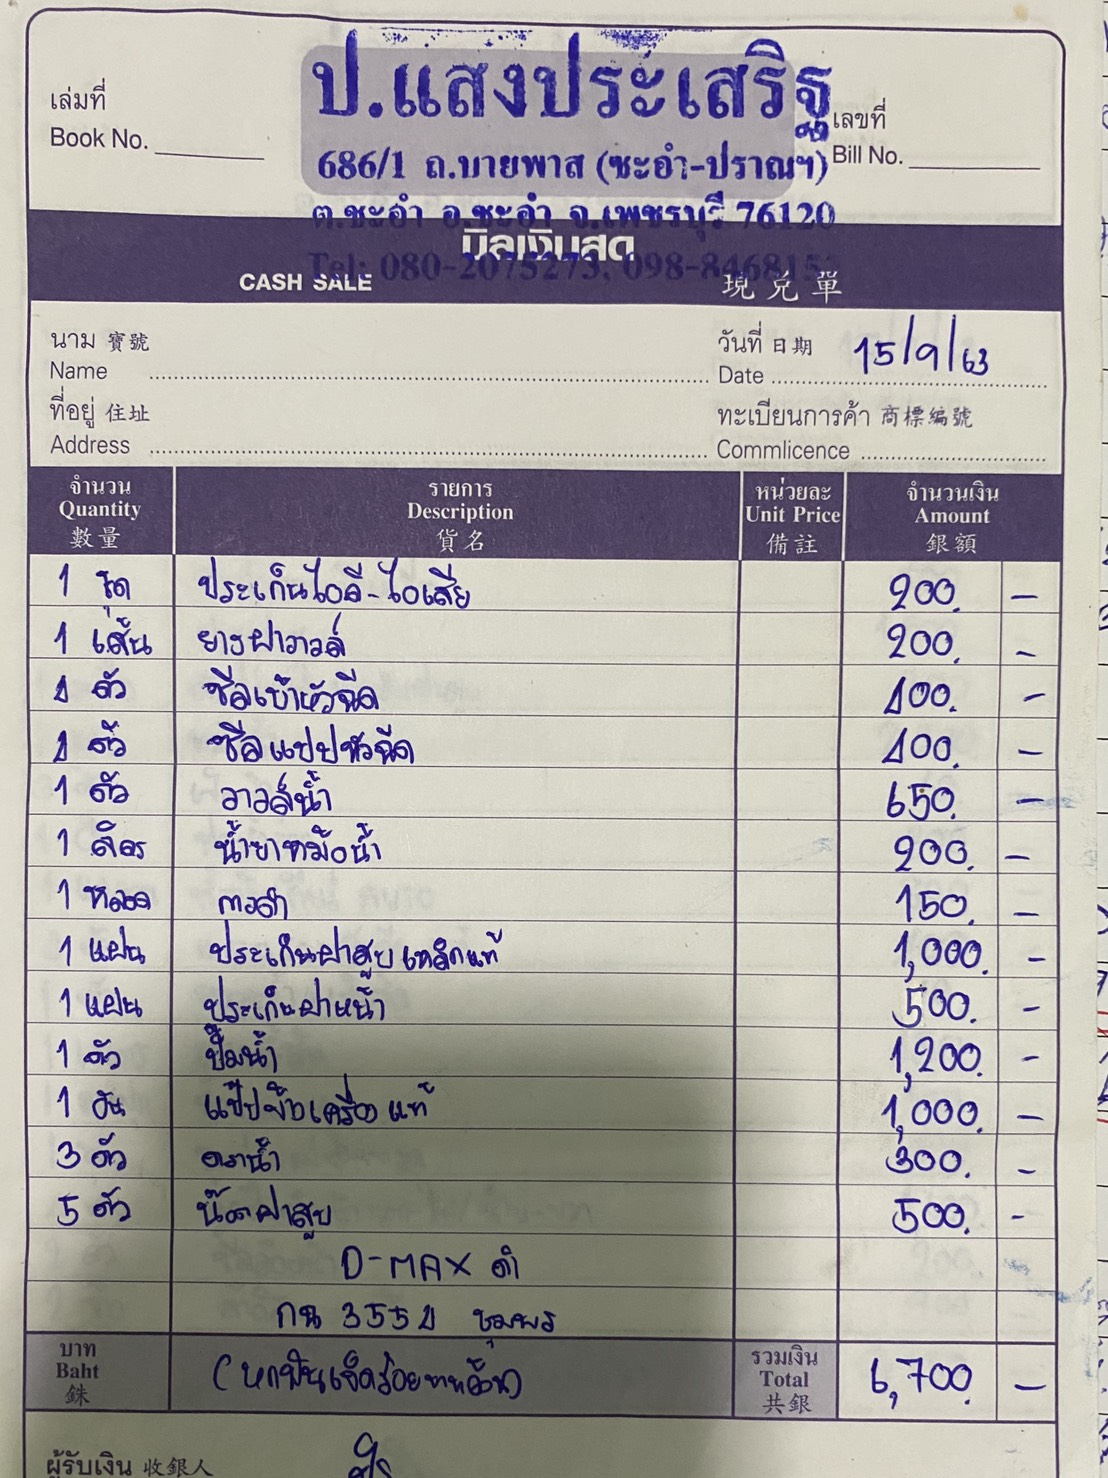 ป.แสงประเสริฐ
686/1 ถ.บายพาส (ชะอำ-ปราณฯ)
ต.ชะอำ อ.ชะอำ จ.เพชรบุรี 76120
Tel: 080-2075273, 098-846815
เล่มที่
Book No.
เลขที่
Bill No.
บิลเงินสด
CASH SALE 現兌單
นาม 寶號
Name
วันที่ 日期
Date 15/9/63
ที่อยู่ 住址
Address
ทะเบียนการค้า 商標編號
Commlicence
จำนวน รายการ หน่วยละ จำนวนเงิน
Quantity Description Unit Price Amount
數量 貨名 備註 銀額
1 ชุด ประเก็นไอดี-ไอเสีย 200. -
1 เส้น ยางฝาวาวล์ 200. -
4 ตัว ซีลเบ้าหัวฉีด 400. -
4 ตัว ซีลแปปหัวฉีด 400. -
1 ตัว วาวล์น้ำ 650. -
1 ลิตร น้ำยาหม้อน้ำ 200. -
1 หลอด กาวดำ 150. -
1 แผ่น ประเก็นฝาสูบเหล็กแท้ 1,000. -
1 แผ่น ประเก็นฝาหน้า 500. -
1 ตัว ปั๊มน้ำ 1,200. -
1 อัน แป๊ปข้างเครื่องแท้ 1,000. -
3 ตัว ตาน้ำ 300. -
5 ตัว น๊อตฝาสูบ 500. -
D-MAX ดำ
กน 3554 ชุมพร
บาท
Baht
銖
(หกพันเจ็ดร้อยบาทถ้วน)
รวมเงิน
Total
共銀
6,700. -
ผู้รับเงิน 收銀人